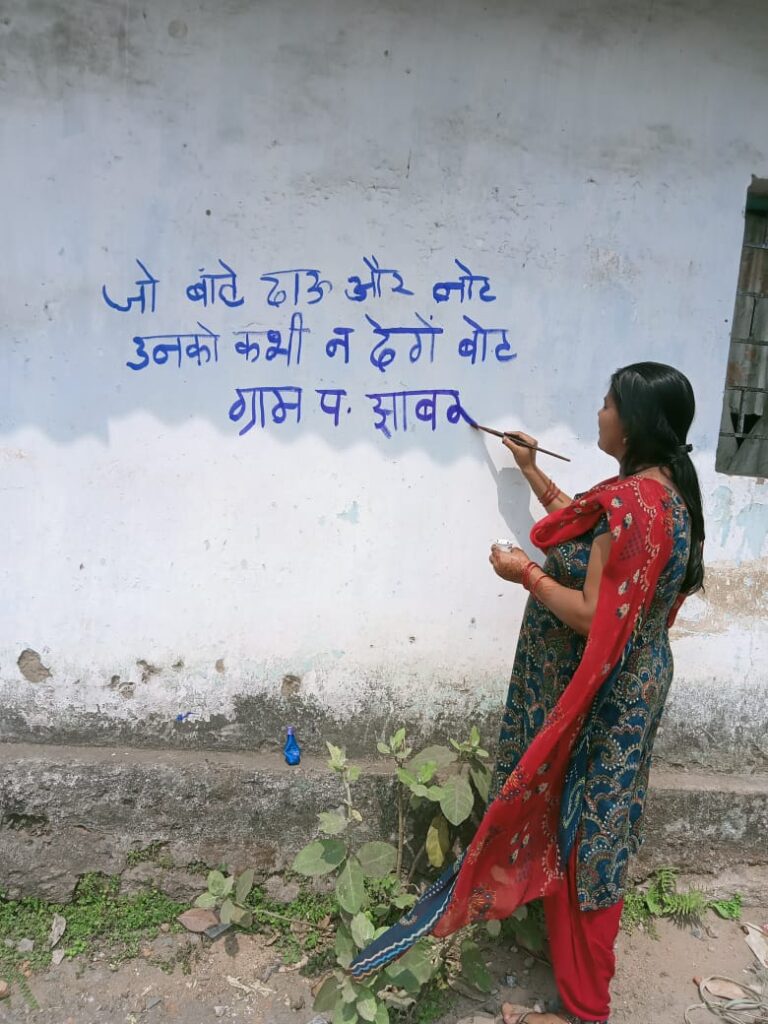 जो बांटे दाऊ और नोट
उनको कभी न देगें बोट
ग्राम प. झाबर